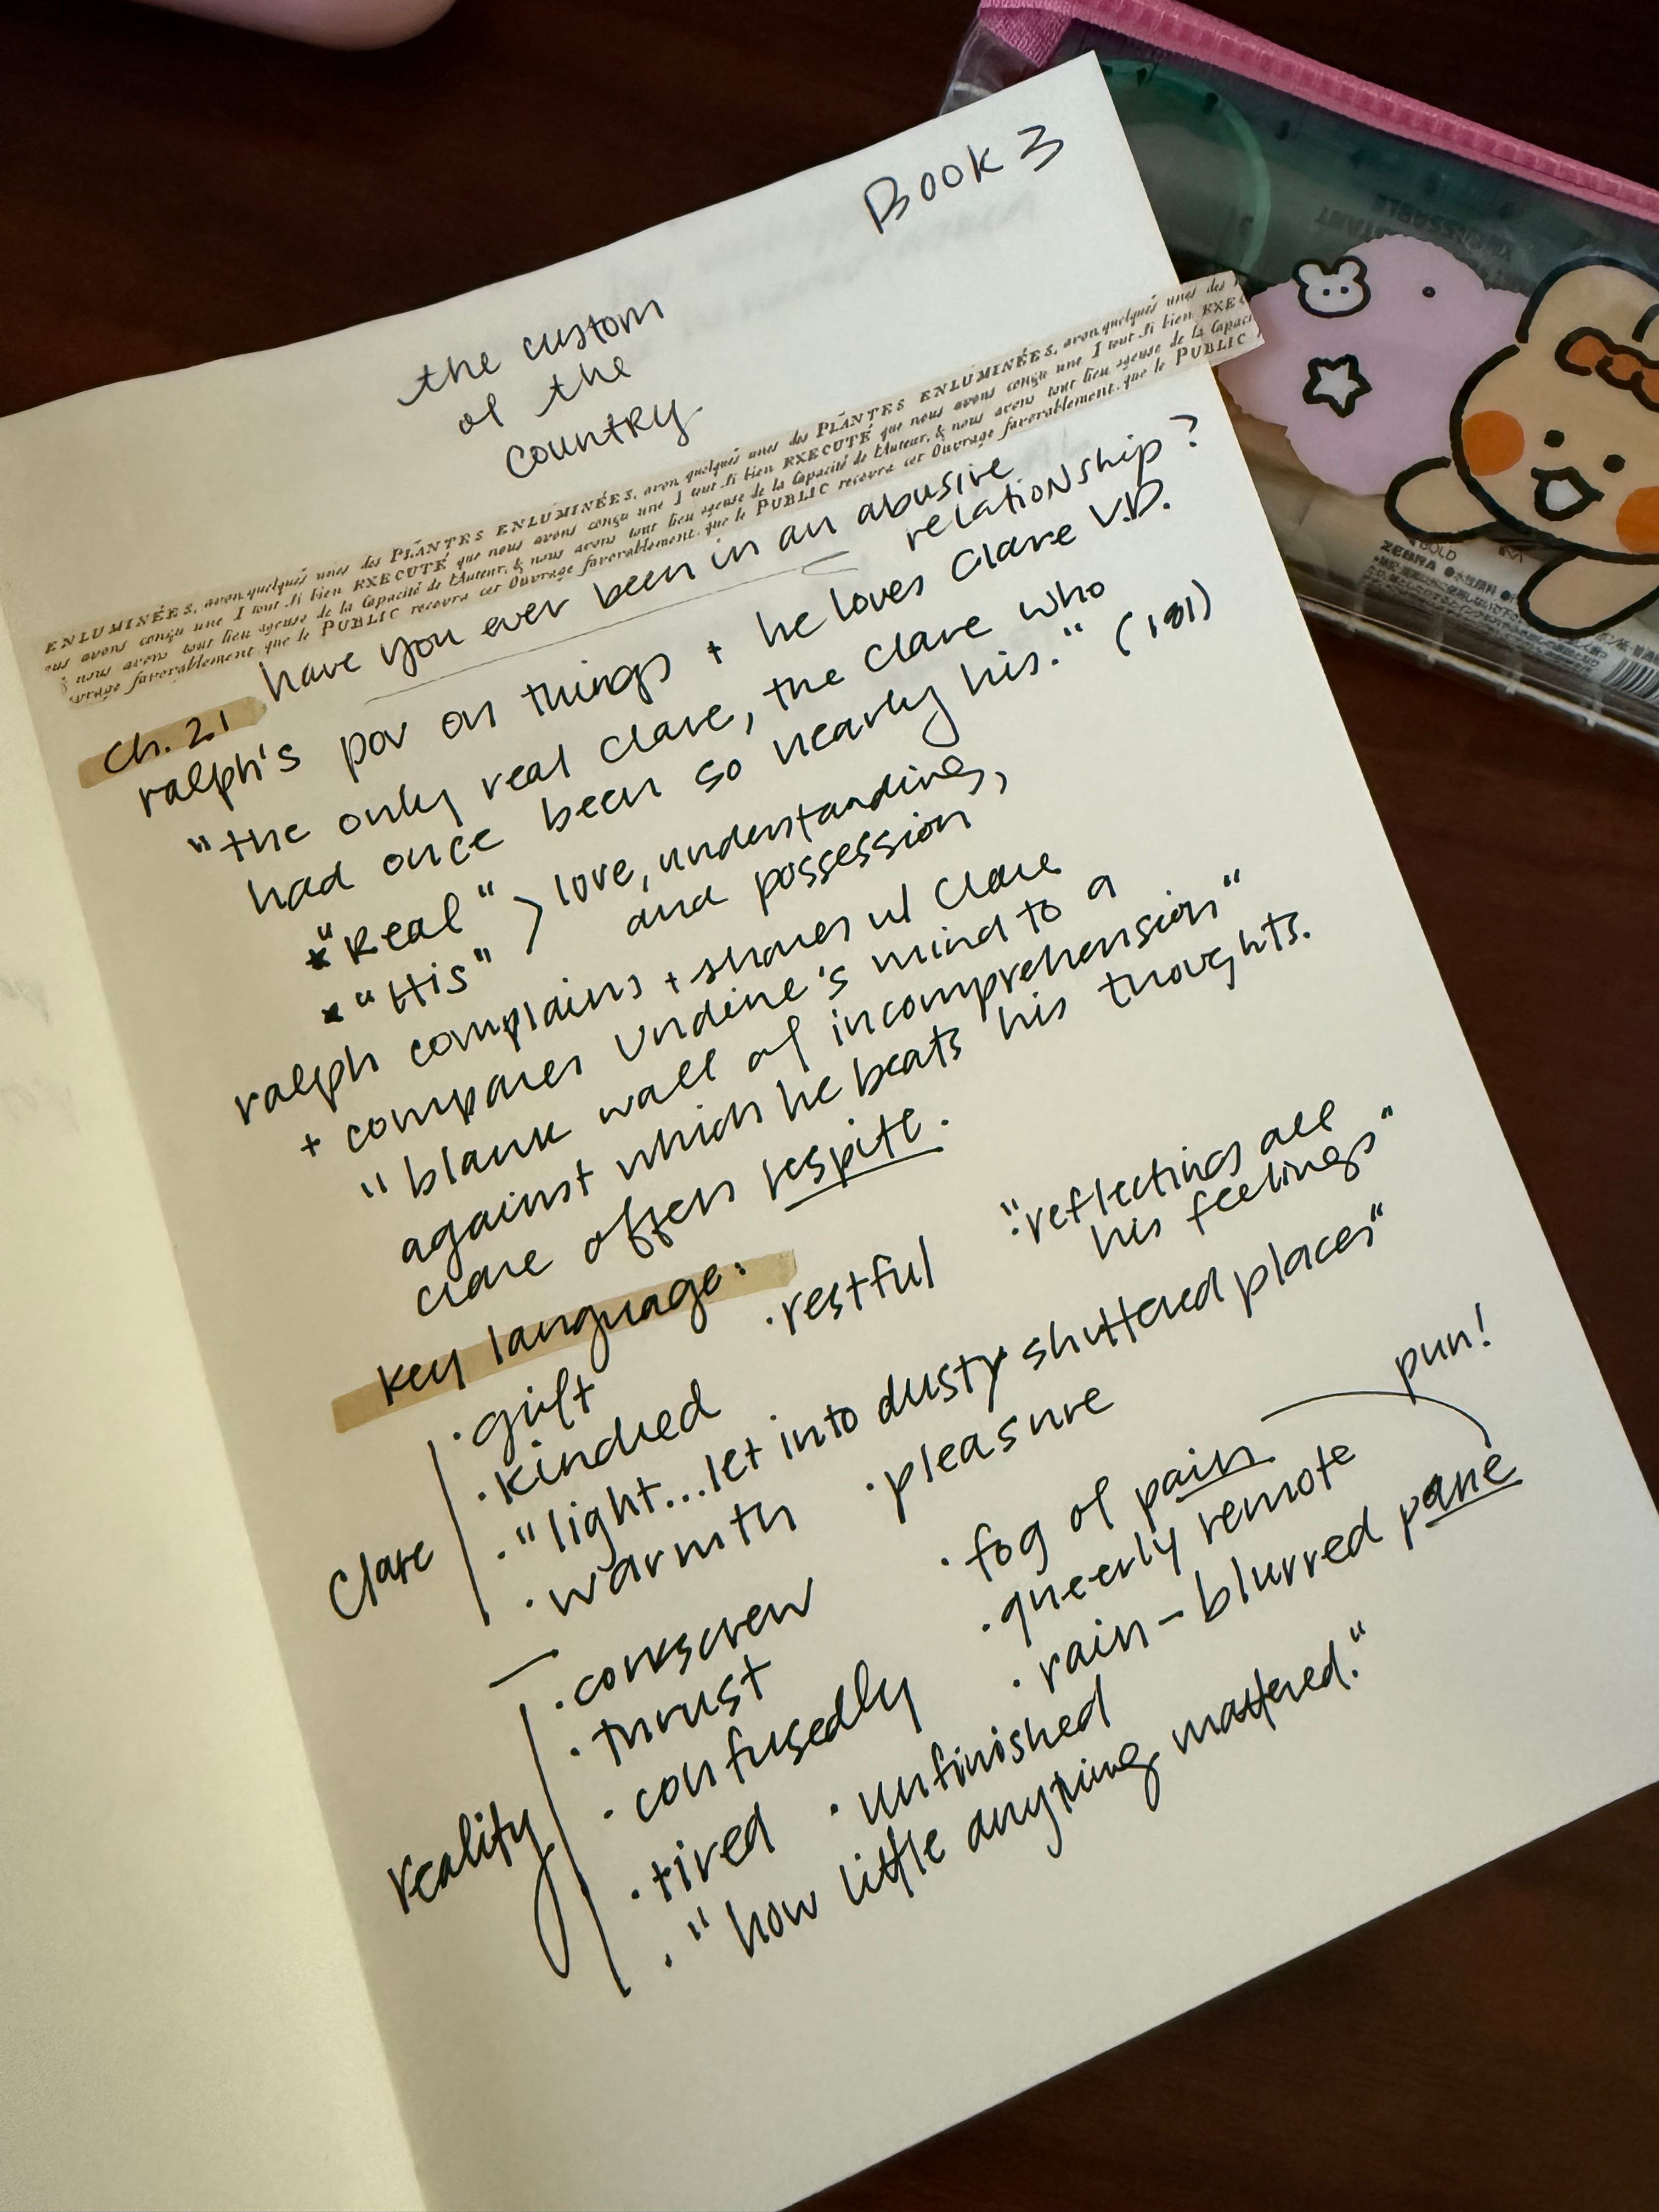 Book 3
the custom
of the
country
ENLUMINÉES, avon quelques unes des PLANTES ENLUMINÉES, avon quelques unes des PLANTES ENLUMINÉES, avon quelques unes des
ous avons conçu une I tout Si bien EXECUTÉ que nous avons conçu une I tout Si bien EXECUTÉ que nous avons conçu une I tout Si bien EXEC
nous avons tout lieu ageuse de la Capacité de l'Auteur, & nous avons tout lieu ageuse de la Capacité de l'Auteur, & nous avons tout lieu ageuse de la Capaci
uvrage favorablement. que le PUBLIC recevra cet Ouvrage favorablement. que le PUBLIC recevra cet Ouvrage favorablement. que le PUBLIC
Ch. 21 have you ever been in an abusive relationship?
ralph's pov on things + he loves Clare V.D.
"the only real Clare, the Clare who
had once been so nearly his." (181)
* "Real" > love, understanding,
* "His" and possession
ralph complains + shares w/ Clare
+ compares Undine's mind to a
"blank wall of incomprehension"
against which he beats his thoughts.
Clare offers respite.
key language:
· restful "reflecting all
his feelings"
Clare
· gift
· kindred
· "light...let into dusty shuttered places"
· warmth · pleasure
pun!
reality
· corkscrew · fog of pain
· thrust · queerly remote
· confusedly · rain-blurred pane
· tired · unfinished
· "how little anything mattered."
ZEBRA